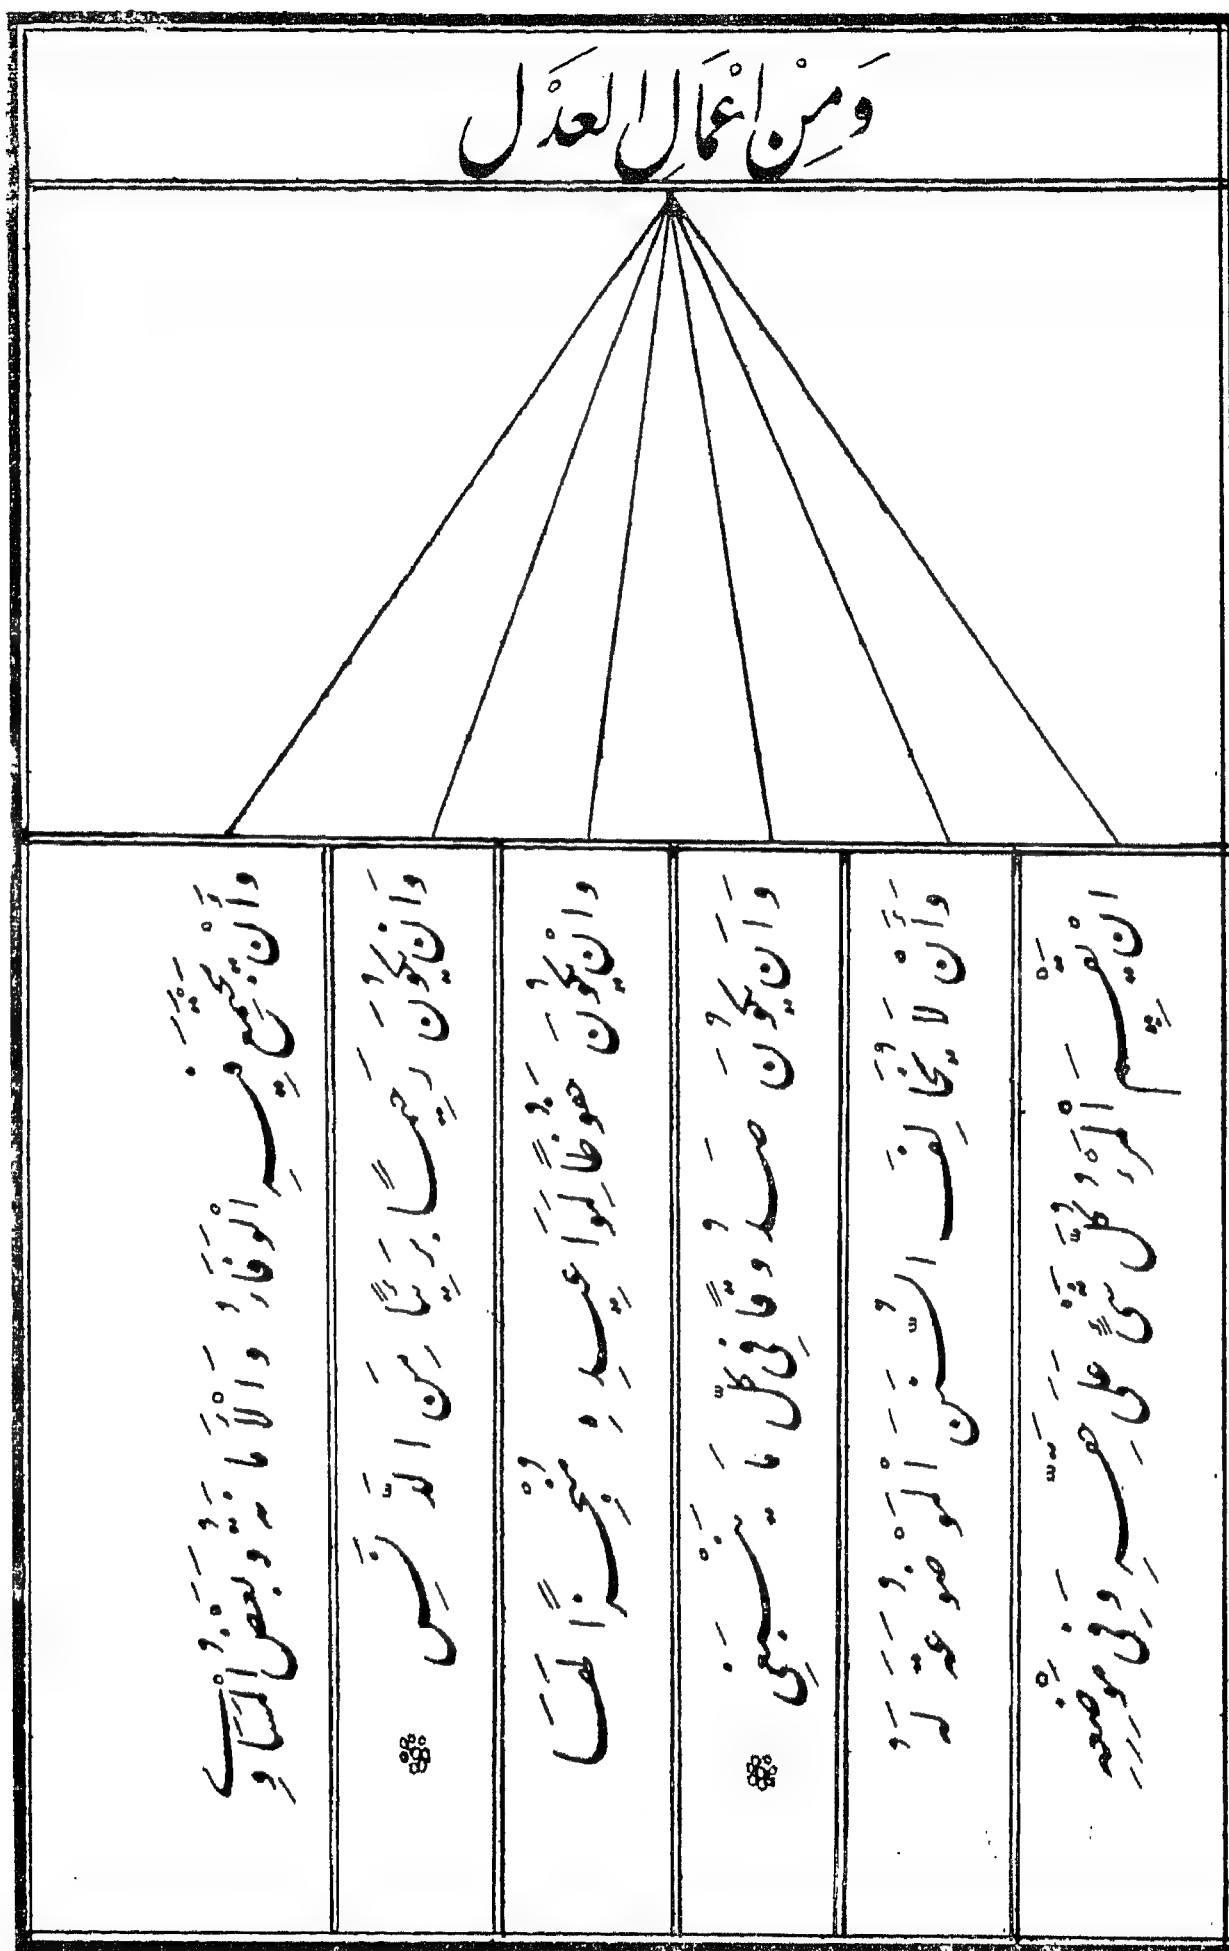 وَمِنْ اعْمَالِ العَدْل
ان يُقيمَ الْمَرْءُ كُلَّ شَيْءٍ عَلَى حَدِّهِ وَفِي مَوْضِعِهِ
وَأَنْ لَا يُخَالِفَ السُّنَنَ الْمَوْضُوعَةَ لَهُ
وَانَ يَكُونَ صَدُوقًا فِي كلّ مَا يَنْبَغِي
وانْ يَكُونَ حَفُوظًا لِمَوَاعِيدِهِ مُنْجِزًا لَهَا
وَانْ يَكُونَ رَحِيمًا بَرِيئًا مِنَ الدَّنَسِ
وَأَنْ يَجْتَمِعَ فِيهِ الْوَقَارُ وَالْأَمَانَةُ وَبُغْضُ الْمَسَاوِي